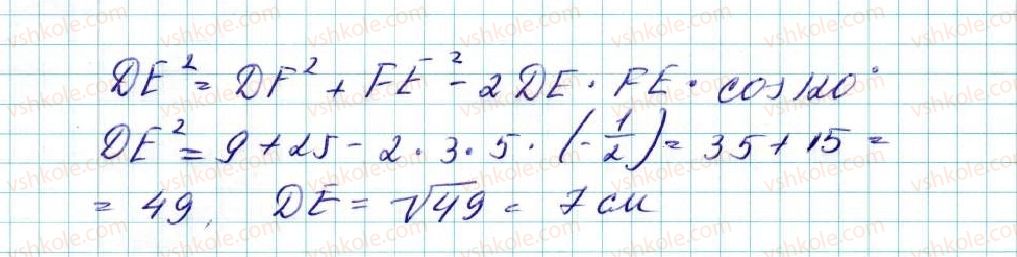 DE² = DF² + FE² - 2 DE · FE · cos 120°
DE² = 9 + 25 - 2 · 3 · 5 · (-1/2) = 35 + 15 =
= 49, DE = √49 = 7 см